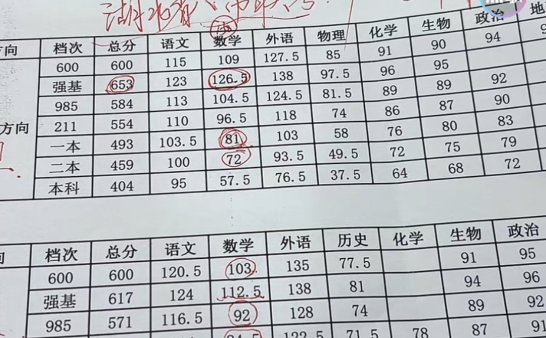 湖北省八市联考
方向 档次 总分 语文 数学 外语 物理 化学 生物 政治 地
600 600 115 109 127.5 85 91 90 94
强基 653 123 126.5 138 97.5 96 95
985 584 113 104.5 124.5 81.5 89 89 92
211 554 110 96.5 118 74 86 87 90
方向 一本 493 103.5 81 103 58 76 80 83
二本 459 100 72 93.5 49.5 72 75 79
本科 404 95 57.5 76.5 37.5 64 68 72
档次 总分 语文 数学 外语 历史 化学 生物 政治
600 600 120.5 103 135 77.5 91 95
强基 617 124 112.5 138 81 94 96
985 571 116.5 92 128 74 89 92
122.5 71.5 78 87 91